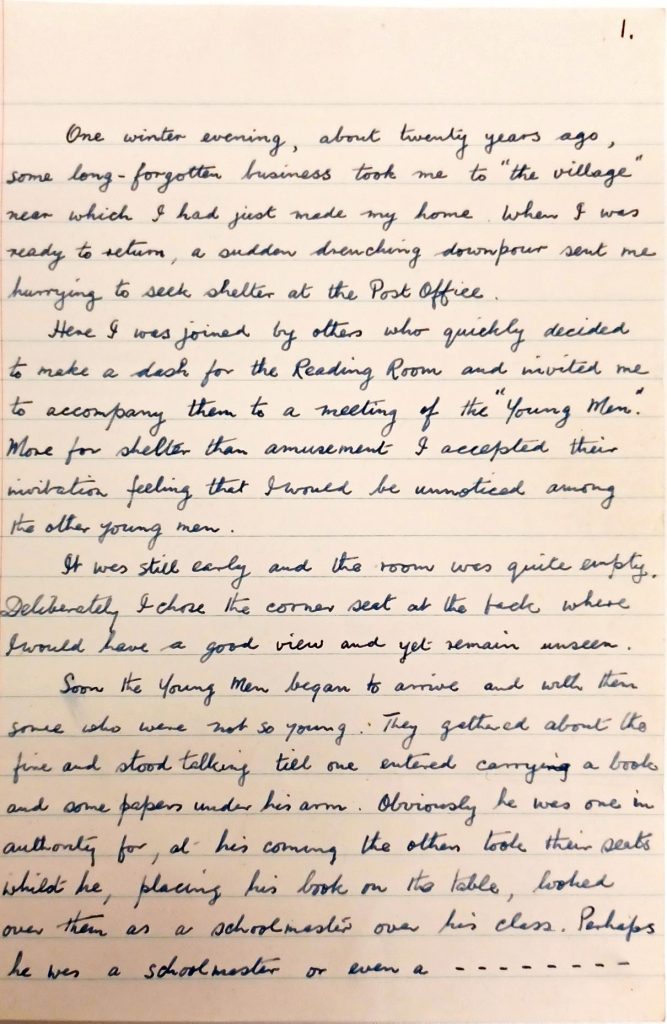 1.
One winter evening, about twenty years ago,
some long-forgotten business took me to "the village"
near which I had just made my home. When I was
ready to return, a sudden drenching downpour sent me
hurrying to seek shelter at the Post Office.
Here I was joined by others who quickly decided
to make a dash for the Reading Room and invited me
to accompany them to a meeting of the "Young Men".
More for shelter than amusement I accepted their
invitation feeling that I would be unnoticed among
the other young men.
It was still early and the room was quite empty.
Deliberately I chose the corner seat at the back where
I would have a good view and yet remain unseen.
Soon the Young Men began to arrive and with them
some who were not so young. They gathered about the
fire and stood talking till one entered carrying a book
and some papers under his arm. Obviously he was one in
authority for, at his coming the others took their seats
whilst he, placing his book on the table, looked
over them as a schoolmaster over his class. Perhaps
he was a schoolmaster or even a - - - - - - - - -